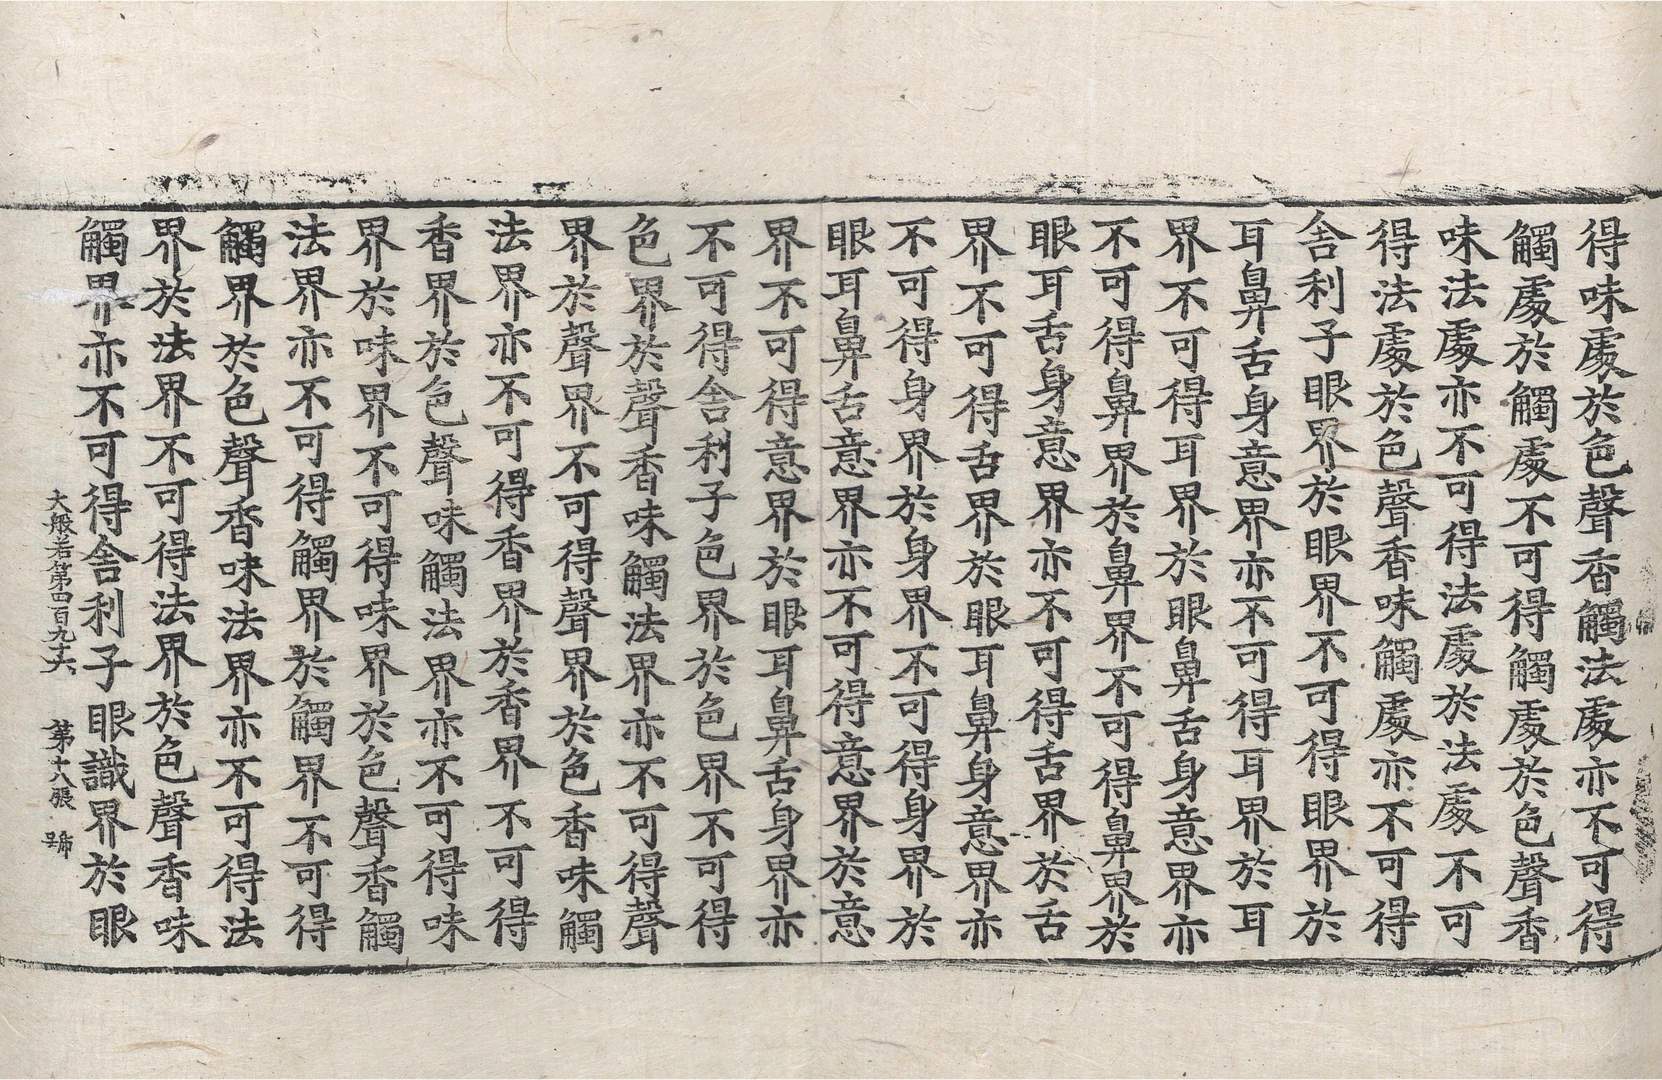 得味處於色聲香觸法處亦不可得
觸處於觸處不可得觸處於色聲香
味法處亦不可得法處於法處不可
得法處於色聲香味觸處亦不可得
舍利子眼界於眼界不可得眼界於
耳鼻舌身意界亦不可得耳界於耳
界不可得耳界於眼鼻舌身意界亦
不可得鼻界於鼻界不可得鼻界於
眼耳舌身意界亦不可得舌界於舌
界不可得舌界於眼耳鼻身意界亦
不可得身界於身界不可得身界於
眼耳鼻舌意界亦不可得意界於意
界不可得意界於眼耳鼻舌身界亦
不可得舍利子色界於色界不可得
色界於聲香味觸法界亦不可得聲
界於聲界不可得聲界於色香味觸
法界亦不可得香界於香界不可得
香界於色聲味觸法界亦不可得味
界於味界不可得味界於色聲香觸
法界亦不可得觸界於觸界不可得
觸界於色聲香味法界亦不可得法
界於法界不可得法界於色聲香味
觸界亦不可得舍利子眼識界於眼
大般若第四百九十六 第十八張 號